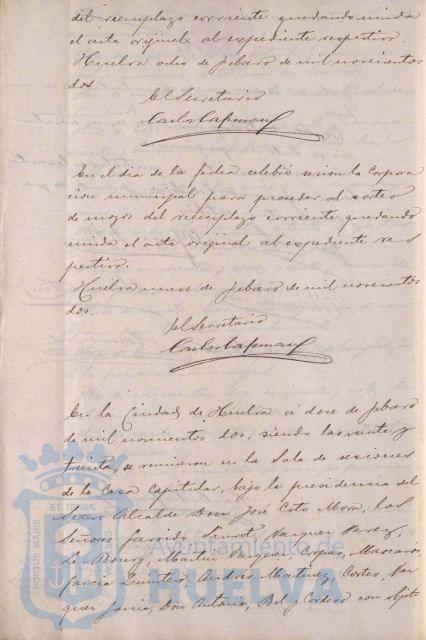 del reemplazo corriente quedando unida
el acta original al expediente respectivo.
Huelva ocho de febrero de mil novecientos
dos
El Secretario
En el dia de la fecha celebró sesion la Corpora
cion municipal para proceder al sorteo
de mozos del reemplazo corriente quedando
unida el acta original al expediente res
pectivo.
Huelva nueve de febrero de mil novecientos
dos.
El Secretario
En la Ciudad de Huelva á doce de febrero
de mil novecientos dos, siendo las veinte y
treinta, se reunieron en la Sala de sesiones
de la Casa Capitular, bajo la presidencia del
Señor Alcalde Don José Coto Mora, los
Señores Garrido, Vazquez Perez,
Martin Vazquez, Mascarós,
Garcia Quintero, Andrés Martinez, Cortes, Vaz
quez, Don Antonio, y Cordero con objeto
Ayuntamiento de
HUELVA
PORTUS MARIS
ET TERRÆ